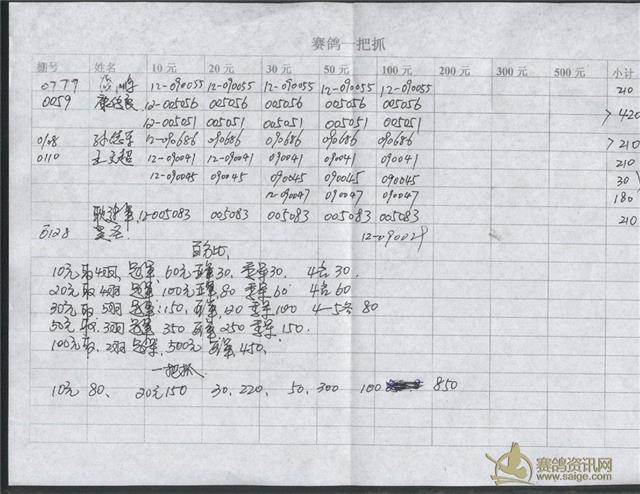 赛鸽一把抓
棚号 姓名 10元 20元 30元 50元 100元 200元 300元 500元 小计
0779 12-090055 12-090055 12-090055 12-090055 12-090055 210
0059 康 良 12-005056 005056 005056 005056 005056
12-005051 005051 005051 005051 005051 > 420
0108 孙 12-090686 090686 090686 090686 090686 > 210
0110 王文超 12-090041 12-090041 090041 090041 090041 210
12-090045 090045 090045 090045 090045 30
12-090047 090047 090047 180
耿 12-005083 005083 005083 005083 005083 210
0128 12-090029
百分比
10元取4羽, 冠军, 60元亚军30, 季军30. 4名30.
20元取4羽 冠军100元亚军80 季军60 4名60
30元取5羽 冠军:150, 亚军, 120 季军100 4-5名80
50元取3羽 冠军350 亚军250 季军150.
100元取.2羽冠军,500元 亚军450.
一把抓
10元80、 20元150 30.220、 50.300 100 850
赛鸽资讯网
www.saige.com